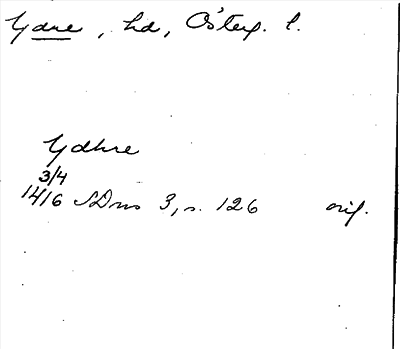 Ydre, hd, Österg. l.
Ydhre
3/4
1416 SDns 3, s. 126 orig.